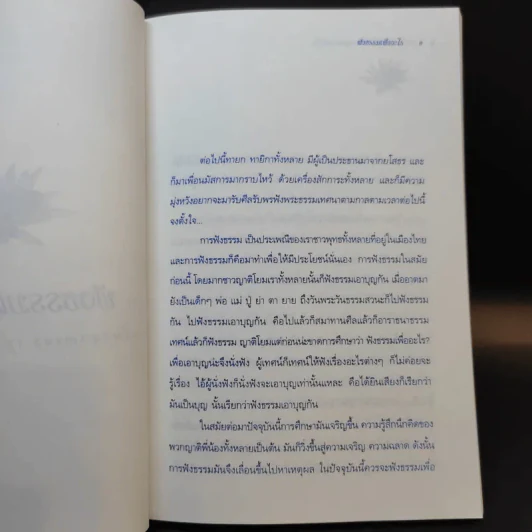 ฟังธรรมเพื่ออะไร
ต่อไปนี้ทายก ทายิกาทั้งหลาย มีผู้เป็นประธานมาจากยโสธร และ
ก็มาเพื่อนมัสการมากราบไหว้ ด้วยเครื่องสักการะทั้งหลาย และก็มีความ
มุ่งหวังอยากจะมารับศีลรับพรฟังพระธรรมเทศนาตามกาลตามเวลาต่อไปนี้
จงตั้งใจ...
การฟังธรรม เป็นประเพณีของเราชาวพุทธทั้งหลายที่อยู่ในเมืองไทย
และการฟังธรรมก็คือมาทำเพื่อให้มีประโยชน์นั่นเอง การฟังธรรมในสมัย
ก่อนนี้ โดยมากชาวญาติโยมเราทั้งหลายนั้นก็ฟังธรรมเอาบุญกัน เมื่ออาตมา
ยังเป็นเด็กๆ พ่อ แม่ ปู่ ย่า ตา ยาย ถึงวันพระวันธรรมสวนะก็ไปฟังธรรม
กัน ไปฟังธรรมเอาบุญกัน คือไปแล้วก็สมาทานศีลแล้วก็อาราธนาธรรม
เทศน์แล้วก็ฟังธรรม ญาติโยมแต่ก่อนน่ะขาดการศึกษาว่า ฟังธรรมเพื่ออะไร?
เพื่อเอาบุญน่ะจึงนั่งฟัง ผู้เทศน์ก็เทศน์ให้ฟังเรื่องอะไรต่างๆ ก็ไม่ค่อยจะ
รู้เรื่อง ไอ้ผู้นั่งฟังก็นั่งฟังจะเอาบุญเท่านั้นแหละ คือได้ยินเสียงก็เรียกว่า
มันเป็นบุญ นั้นเรียกว่าฟังธรรมเอาบุญกัน
ในสมัยต่อมาปัจจุบันนี้การศึกษามันเจริญขึ้น ความรู้สึกนึกคิดของ
พวกญาติพี่น้องทั้งหลายเป็นต้น มันก็วิ่งขึ้นสู่ความเจริญ ความฉลาด ดังนั้น
การฟังธรรมมันจึงเลื่อนขึ้นไปหาเหตุผล ในปัจจุบันนี้ควรจะฟังธรรมเพื่อ